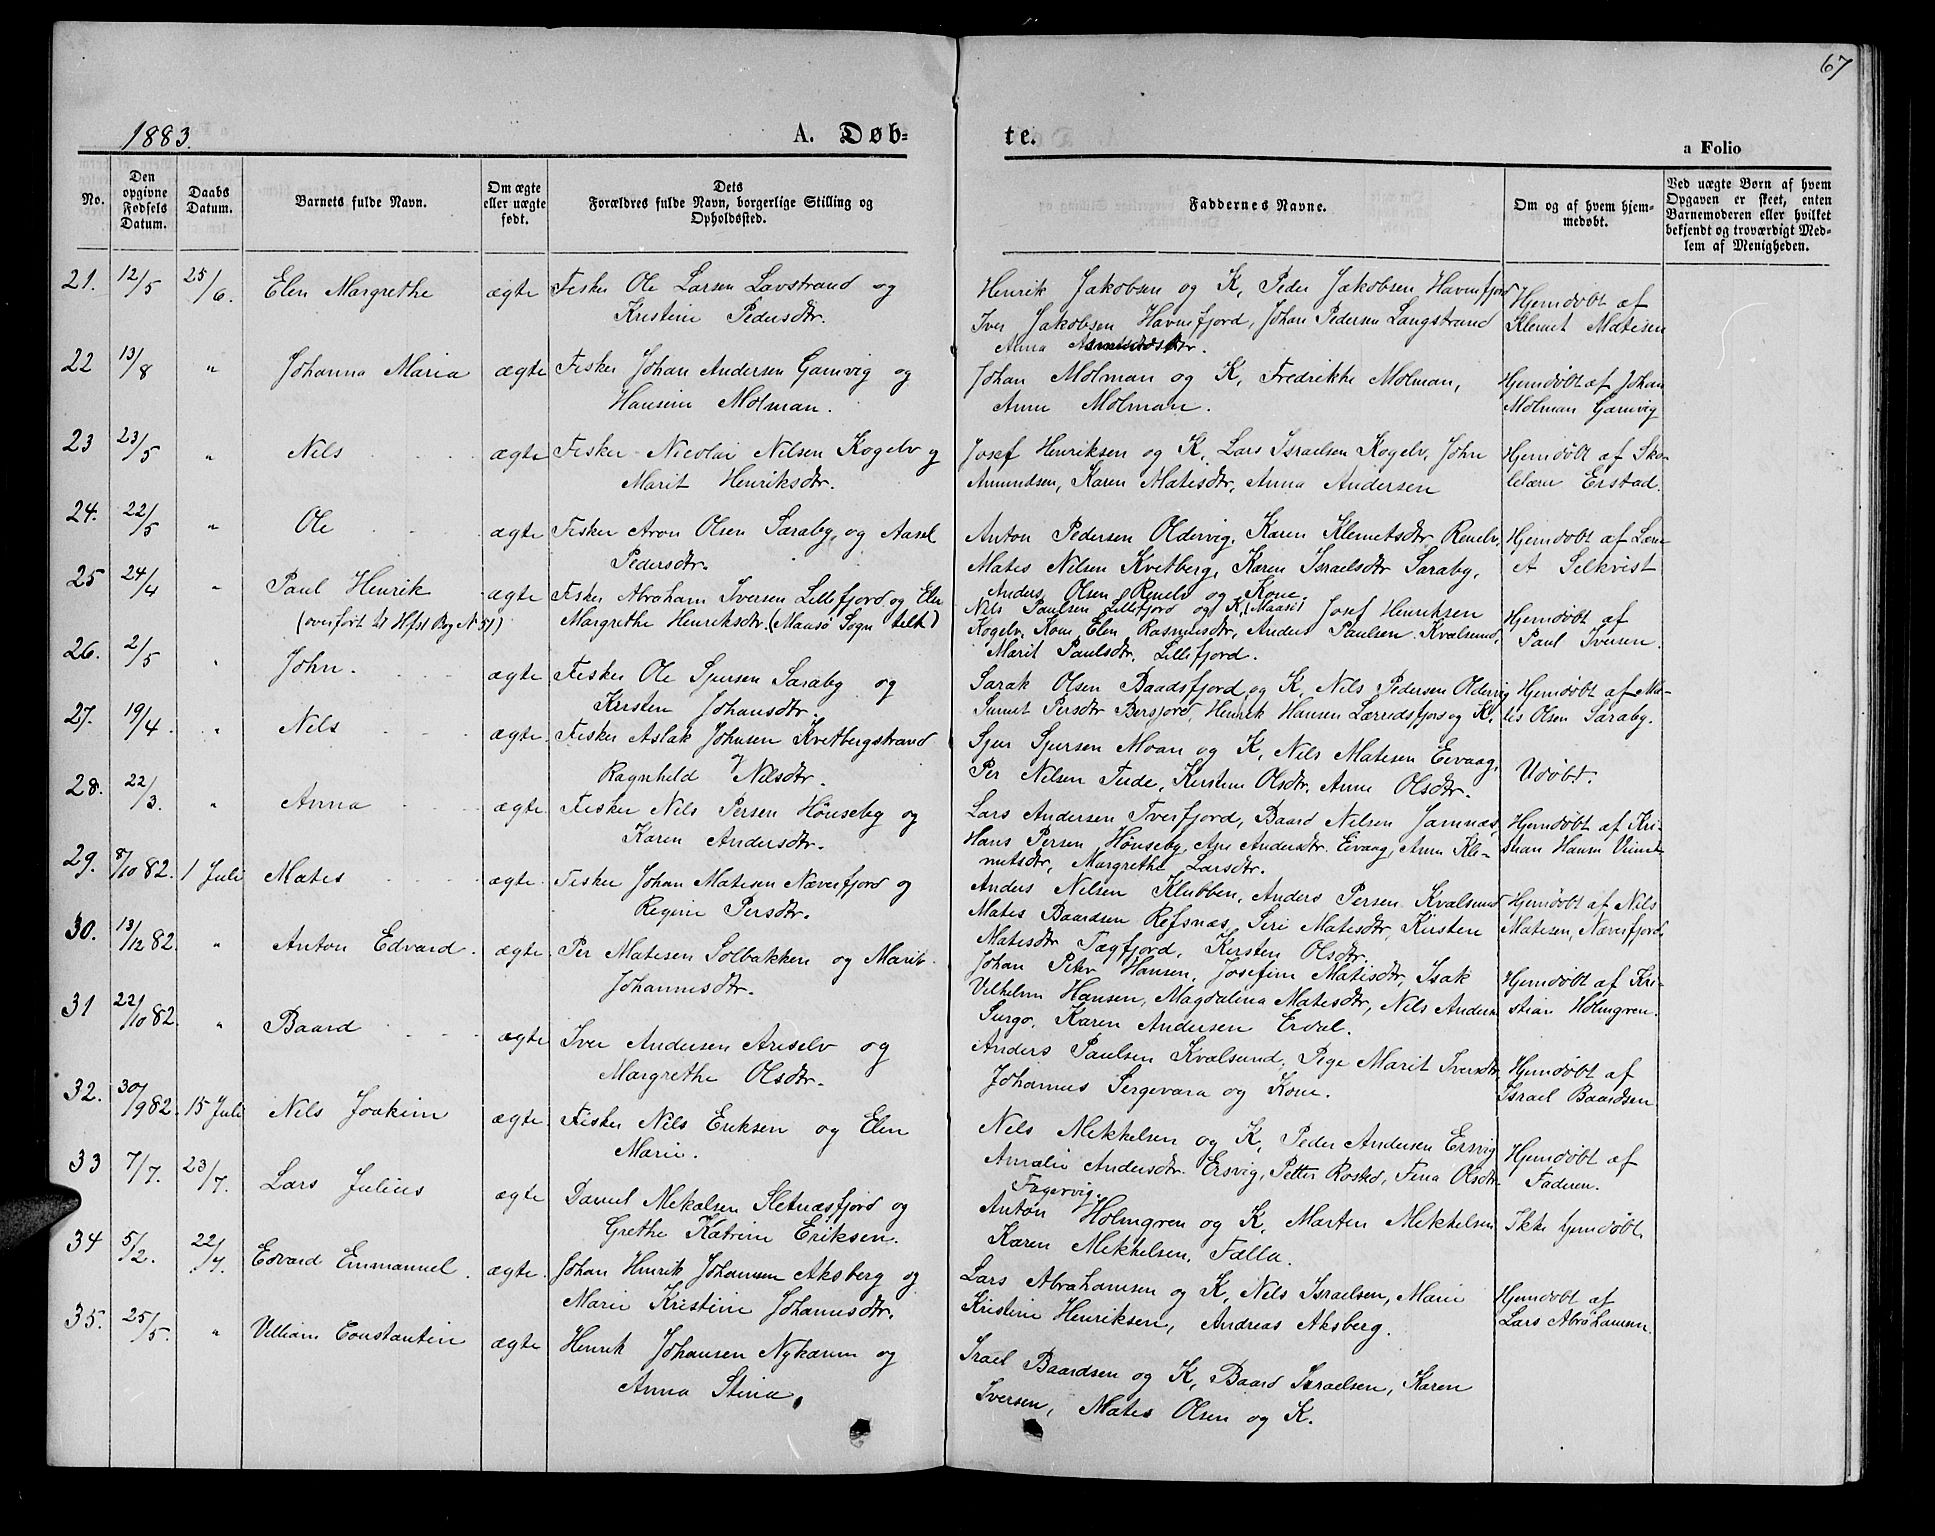 67
1883.
A. Døb=
te.
a Folio
No.
Den opgivne Fødsels Datum.
Daabs Datum.
Barnets fulde Navn.
Om ægte eller uægte født.
Dets Forældres fulde Navn, borgerlige Stilling og Opholdssted.
Faddernes Navne.
Om og af hvem hjemmedøbt.
Ved uægte Børn af hvem Opgaven er skeet, enten Barnemoderen eller hvilket bekjendt og troværdigt Medlem af Menigheden.
21. 12/5 25/6. Elen Margrethe ægte Fisker Ole Larsen Lavstrand og
Kristine Pedersdtr.
Henrik Jakobsen og K, Peder Jakobsen Havnefjord
Iver Jakobsen Havnefjord, Johan Pedersen Langstrand
Anna
Hjemdøbt af
Klemet Matisen
22 13/8 " Johanna Maria ægte Fisker Johan Andersen Gamvig og
Hansine Molman.
Johan Molman og K, Fredrikke Molman,
Anne Molman.
Hjemdøbt af Johan
Molman Gamvig
23 23/5 " Nils ægte Fisker Nicolai Nilsen Kogelv og
Marit Henriksdtr.
Josef Henriksen og K, Lars Israelsen Kogelv, John
Amundsen, Karen Matisdtr, Anna Andersen
Hjemdøbt af Sko-
lelærer Erstad.
24. 22/5 " Ole ægte Fisker Aron Olsen Saraby, og Aasel
Pedersdtr.
Anton Pedersen Oldervig, Karen Klemetsdtr Renelv,
Mates Nilsen Kvitberg, Karen Israelsdtr Saraby,
Anders Olsen Renelv og Kone.
Hjemdøbt af
A Selkvist
25 24/4 " Paul Henrik ægte Fisker Abraham Iversen Lillefjord og Elen
(overført til Hfst Bog N 51) Margrethe Henriksdtr. (Maasø Sogn tilh)
Nils Paulsen Lillefjord og K, (Maasø) Josef Henriksen
Kogelv, Kone Elen Rasmusdtr, Anders Paulsen Kvalsund,
Marit Paulsdtr, Lillefjord.
Hjemdøbt af
Paul Iversen.
26. 2/5 " John. ægte Fisker Ole Sjursen Saraby og
Kirsten Johansdtr.
Sarak Olsen Baadsfjord og K, Nils Pedersen Oldervig
Persdtr Bersfjord, Henrik Hansen Lærredsfjord og K.
Hjemdøbt af Ma-
tis Olsen Saraby.
27. 19/4. " Nils ægte Fisker Aslak Johnsen Kvitbergstrand
og Ragnhild Nilsdtr.
Sjur Sjursen Moan og K, Nils Matisen Eivaag,
Per Nilsen Tude, Kirstine Olsdtr, Anne Olsdtr.
Udøbt.
28. 22/3. " Anna ægte Fisker Nils Persen Hønseby og
Karen Andersdtr.
Lars Andersen Tverfjord, Baard Nilsen Jamnæs,
Hans Persen Hønseby, Ane Andersdtr. Eivaag, Anne Kle-
metsdtr, Margrethe Larsdtr.
Hjemdøbt af Kri-
stian Hansen
29. 8/10 82. 1 Juli Mates ægte. Fisker Johan Matisen Næverfjord og
Regine Persdtr.
Anders Nilsen Klubben, Anders Persen Kvalsund
Mates Baardsen Refsnæs, Siri Matisdtr, Kirsten
Matisdtr Tægfjord, Kirsten Olsdtr.
Hjemdøbt af Nils
Matisen, Næverfjord.
30. 13/12 82. " Anton Edvard. ægte. Per Matisen Solbakken og Marit
Johannesdtr.
Johan Peter Hansen, Josefine Matisdtr, Isak
Vilhelm Hansen, Magdalina Matisdtr, Nils Anders
Surgo, Karen Andersen Erdal.
Hjemdøbt af Kri-
stian Holmgren.
31 22/10 82. " Baard ægte Iver Andersen Ariselv og
Margrethe Olsdtr.
Anders Paulsen Kvalsund, Pige Marit Iversdtr
Johannes Sergevara og Kone.
Hjemdøbt af
Israel Baardsen
32. 30/9 82. 15 Juli Nils Joakim ægte. Fisker Nils Eriksen og Elen
Marie.
Nils Mikkelsen og K, Peder Andersen Ersvig
Amalie Andersdtr. Ersvig, Petter Rosted, Fina Olsdtr
Fagervig.
Hjemdøbt af
Faderen.
33 7/7. 23/7. Lars Julius ægte Daniel Mikalsen Sletnæsfjord og
Grethe Katrine Eriksen.
Anton Holmgren og K, Marten Mikkelsen
Karen Mikkelsen, Falla.
Ikke hjemdøbt.
34 5/2. 22/7. Edvard Emmanuel. ægte. Johan Henrik Johansen Aksberg og
Marie Kristine Johannesdtr.
Lars Abrahamsen og K, Nils Israelsen, Marie
Kristine Henriksen, Andreas Aksberg.
Hjemdøbt af
Lars Abrahamsen.
35. 25/5. " Villiam Constantin ægte Henrik Johansen Nykarm og
Anna Stina.
Israel Baardsen og K, Baard Israelsen, Karen
Iversen, Mates Olsen og K.